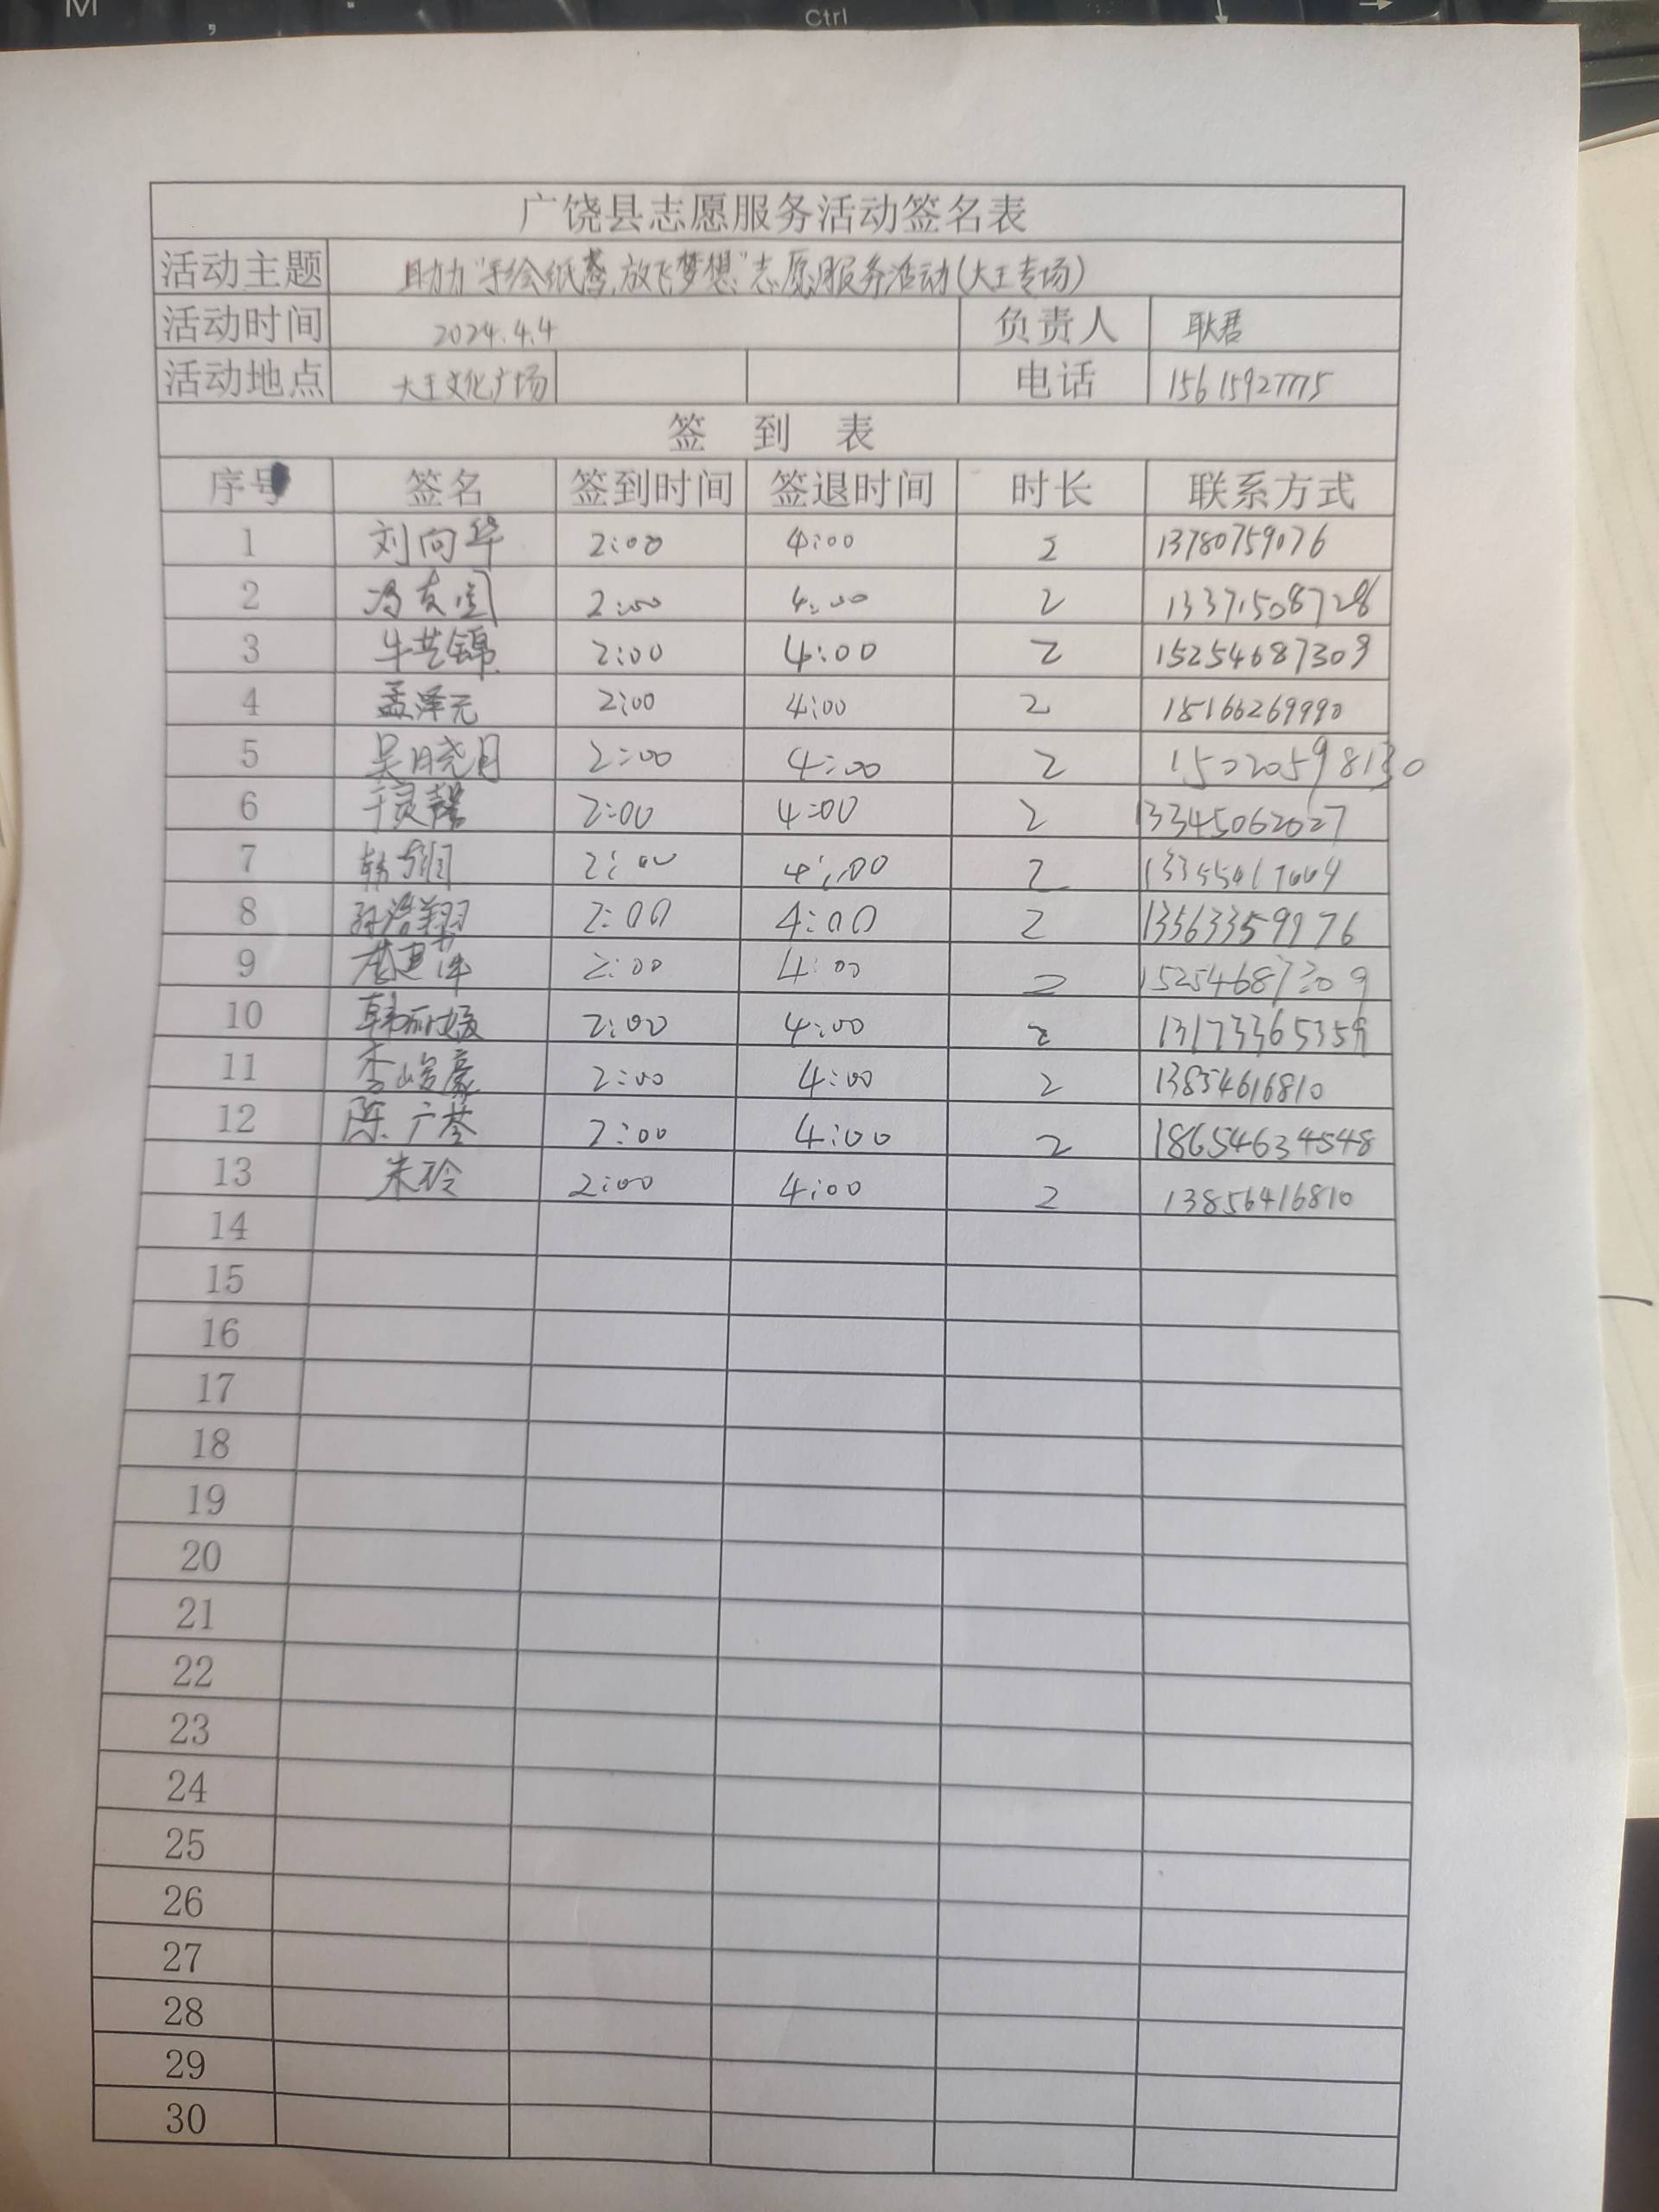 Ctrl
广饶县志愿服务活动签名表
活动主题 助力"手绘纸鸢,放飞梦想"志愿服务活动(大王专场)
活动时间 2024.4.4 负责人 耿君
活动地点 大王文化广场 电话 15615927775
签 到 表
序号 签名 签到时间 签退时间 时长 联系方式
1 刘向华 2:00 4:00 2 13780759076
2 2:00 4:00 2
3 牛芸锦 2:00 4:00 2 15254687309
4 孟泽元 2:00 4:00 2 15166269990
5 吴晓月 2:00 4:00 2 15020598130
6 于灵馨 2:00 4:00 2 13345062027
7 2:00 4:00 2
8 孙浩翔 2:00 4:00 2 13563359976
9 2:00 4:00 2 15254687309
10 2:00 4:00 2 13173365359
11 李峻豪 2:00 4:00 2 13854616810
12 2:00 4:00 2 18654634548
13 朱玲 2:00 4:00 2 13856416810
14
15
16
17
18
19
20
21
22
23
24
25
26
27
28
29
30